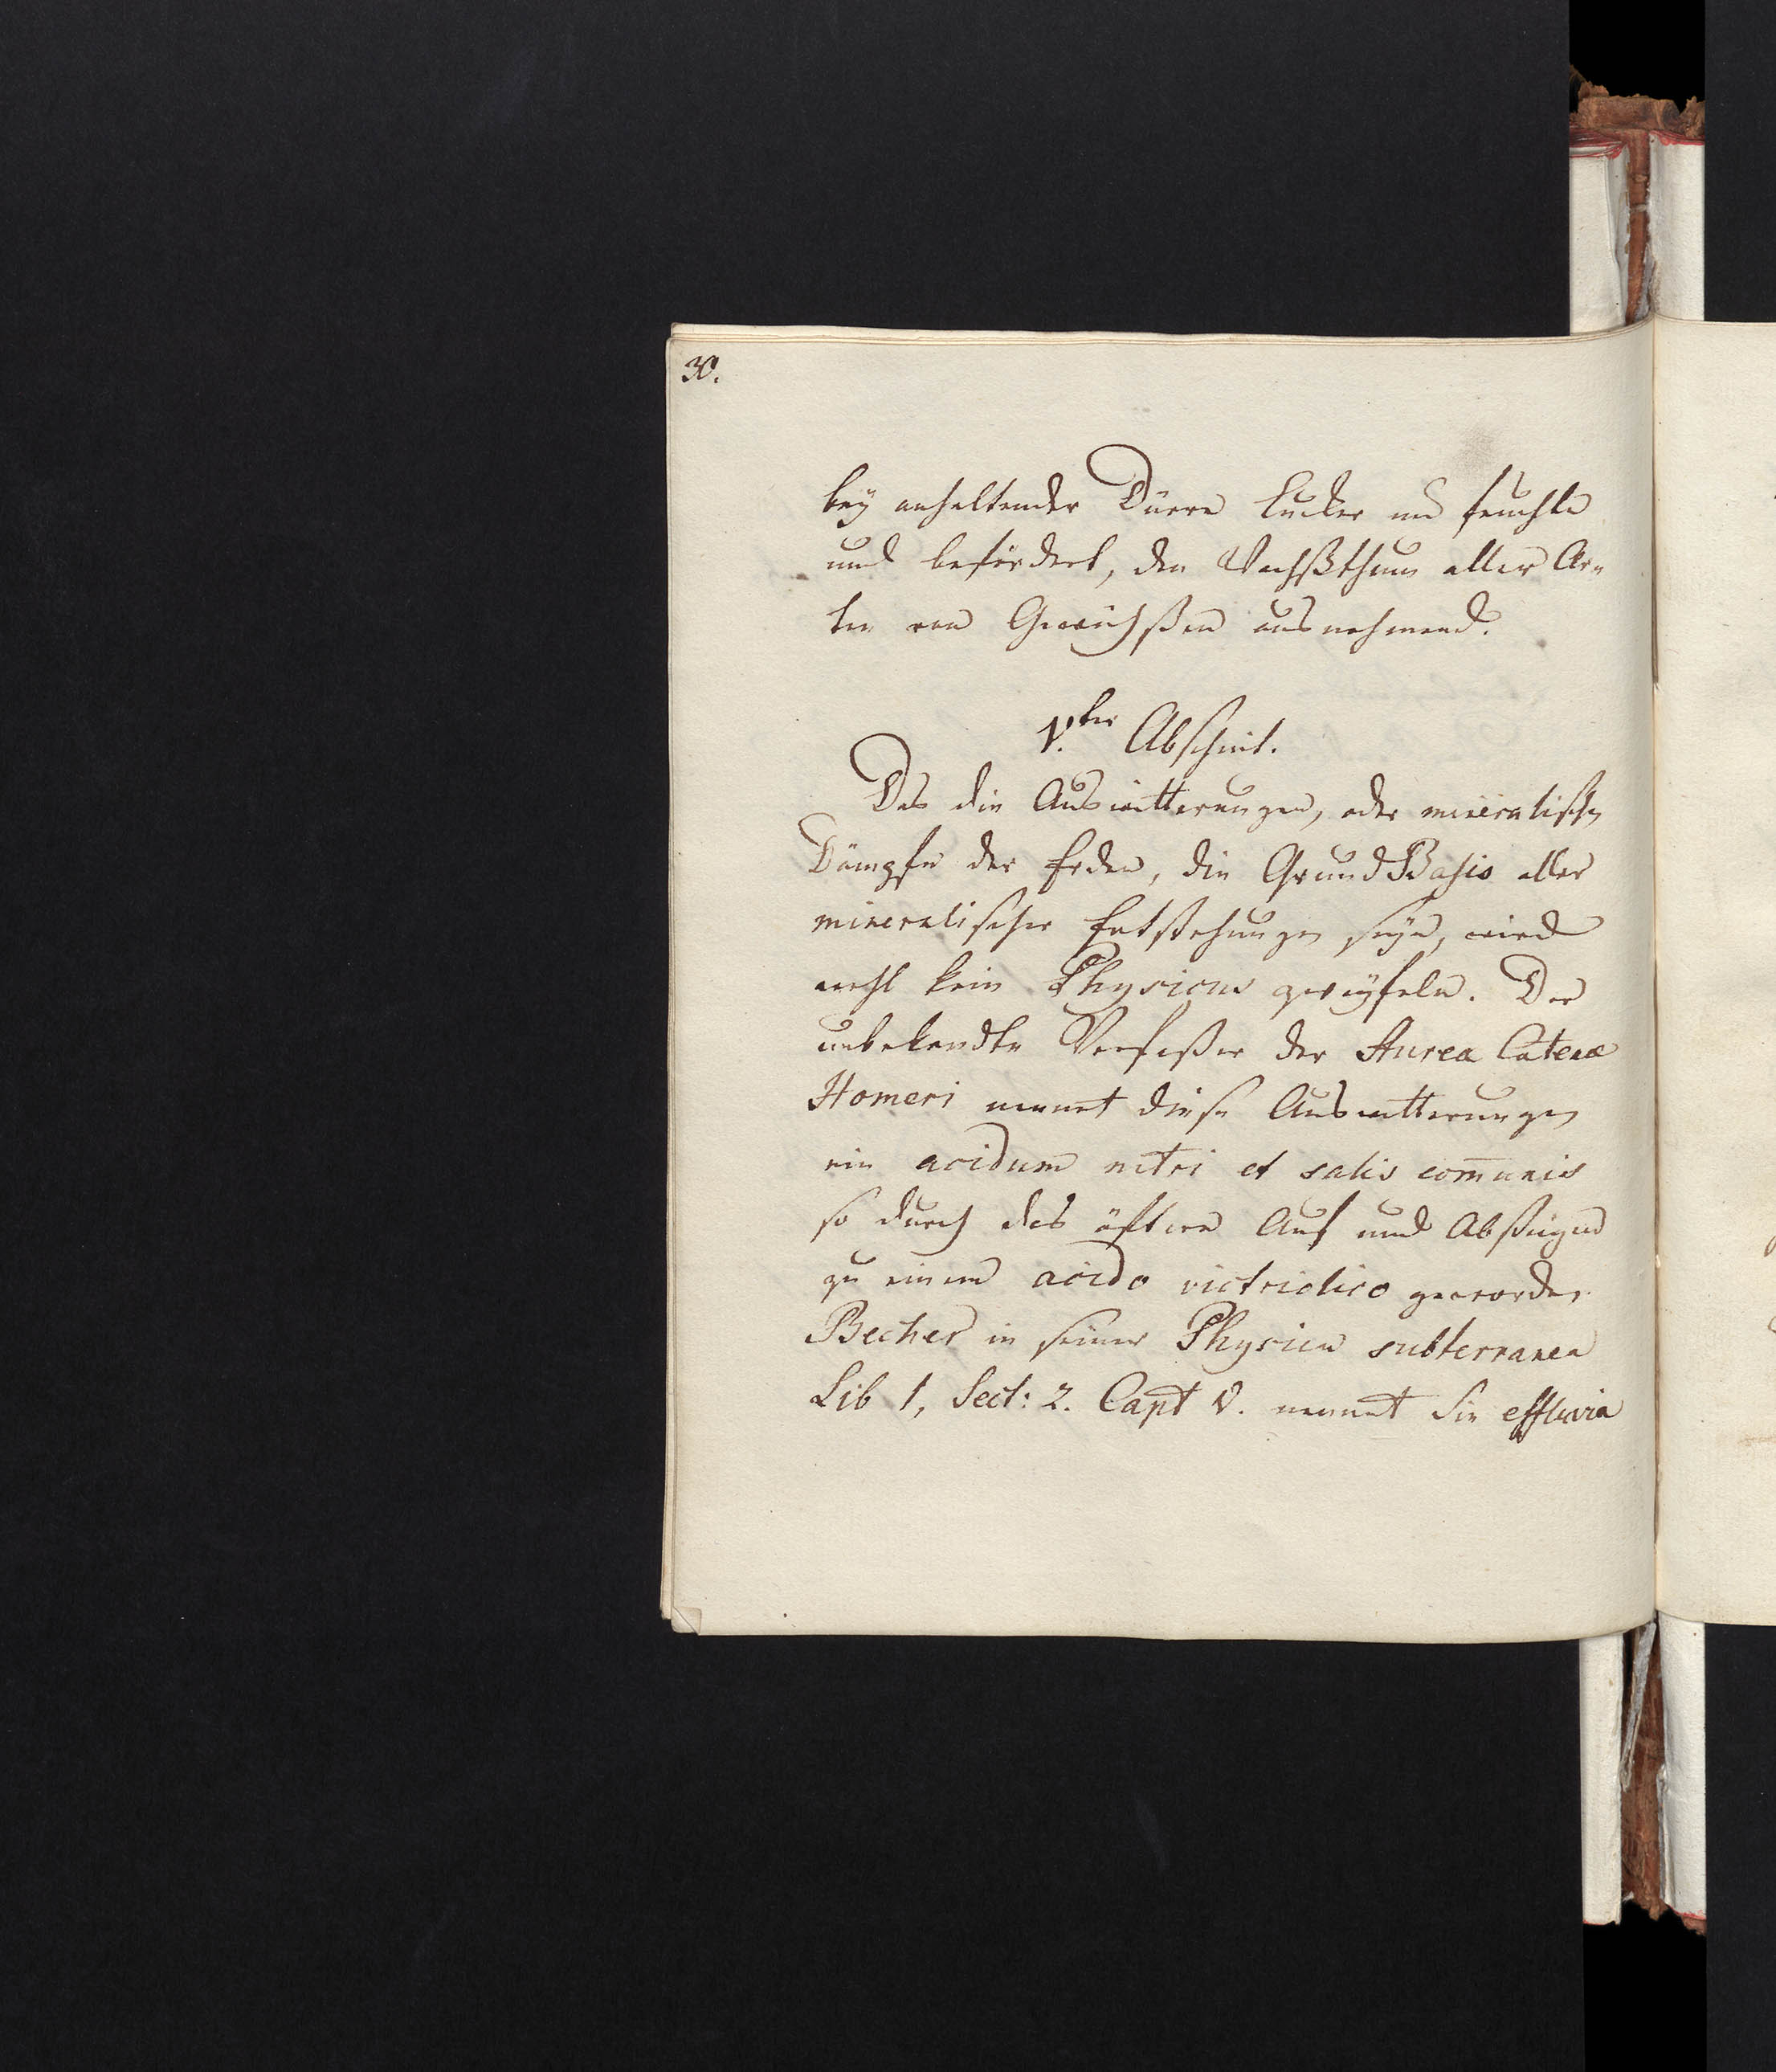 30.
bey anhaltender Dürre lucker und feuchte
und befördert, den Wachßthum aller Ar-
ten von Gewächßen ausnehmend.
V.ter Abschnit.
Das die Auswitterungen, oder mineralischen
Dämpfe der Erden, die Grund Basis aller
mineralischer Entstehungen seyn, wird
wohl kein Physicus zweyfeln. Der
unbekandte Verfaßer der Aurea Catenæ
Homeri nennet diese Auswitterungen
ein acidum nitri et salis com̅unis
so durch das öftere Auf und Absteigen
zu einem acido victriolico geworden.
Becher in seiner Physica subterranea
Lib 1, Sect: 2. Capt V. nennet Sie effluvia